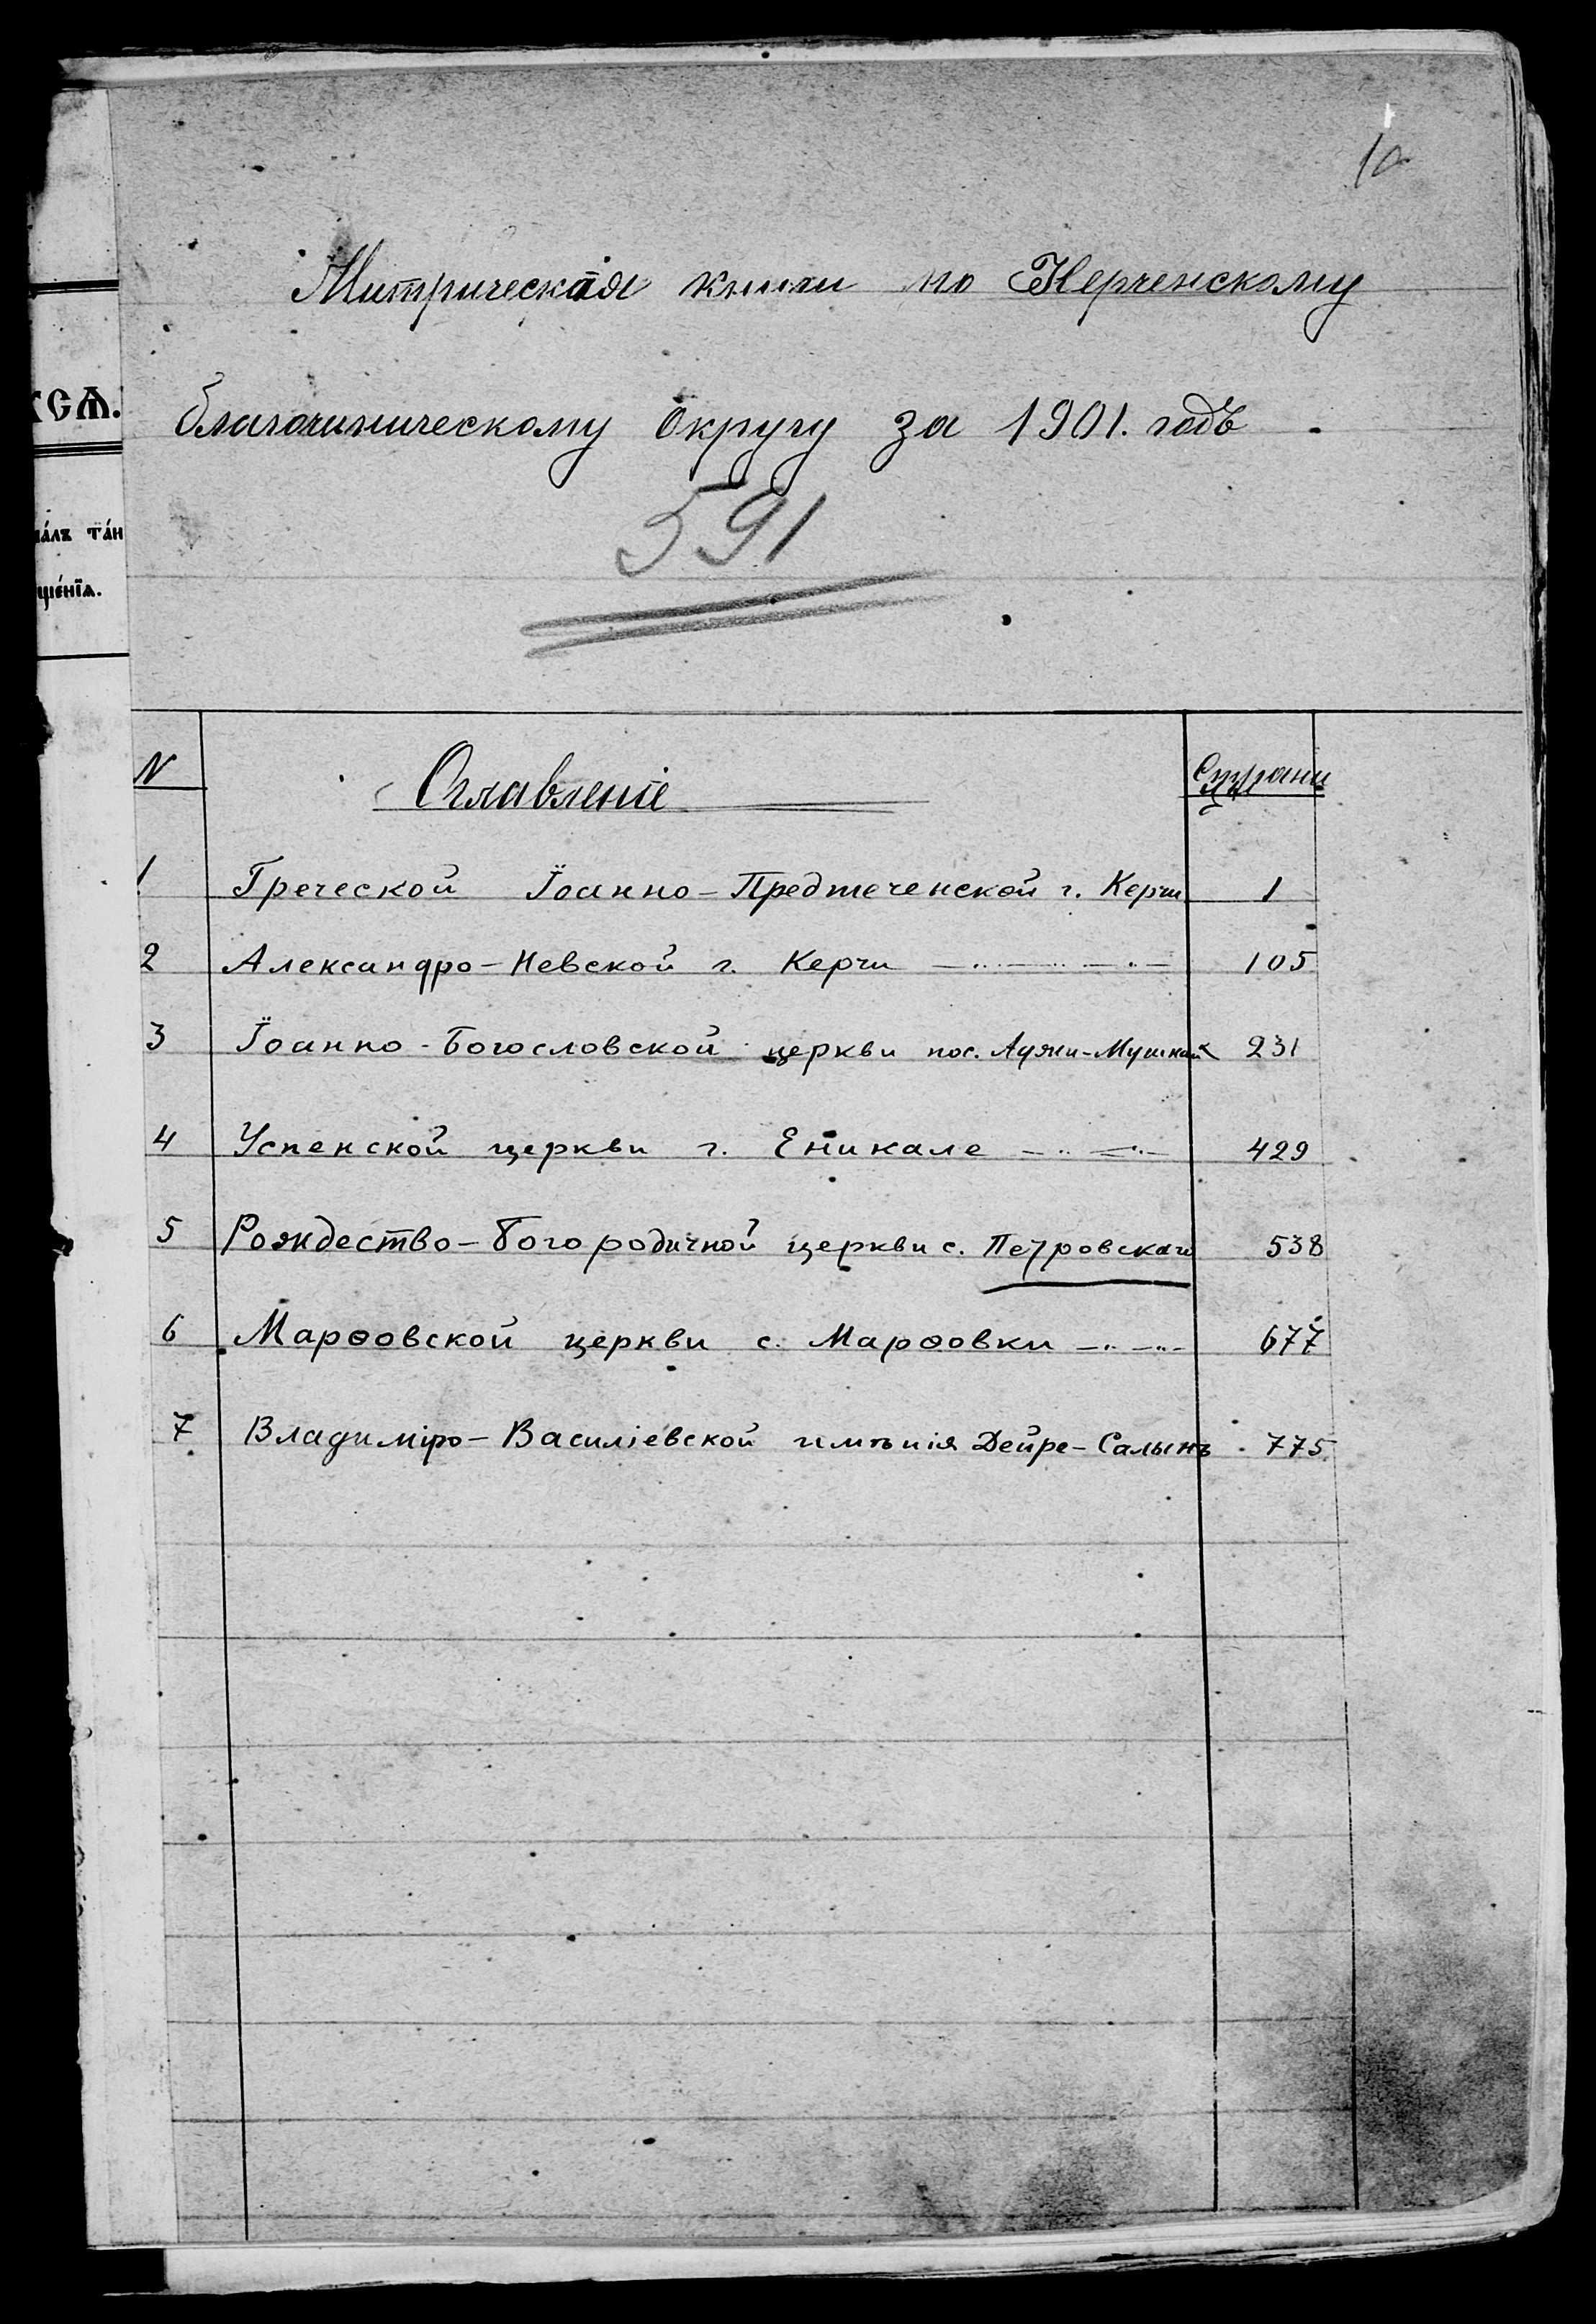 10
Митрическая книги по Керченскому
Благочинническому округу за 1901. годъ
591
КСѦ.
та́н
ще́нїѧ.
N Оглавленіе Страниц
1 Греческой Їоанно-Предтеченской г. Керчи 1
2 Александро-Невской г. Керчи 105
3 Їоанно-Богословской церкви пос. Аджи-Мушкай 231
4 Успенской церкви г. Еникале 429
5 Рождество-Богородичной церкви с. Петровскаго 538
6 Марѳовской церкви с. Марѳовки 677
7 Владиміро-Василіевской имѣнія Дейре-Салынъ 775